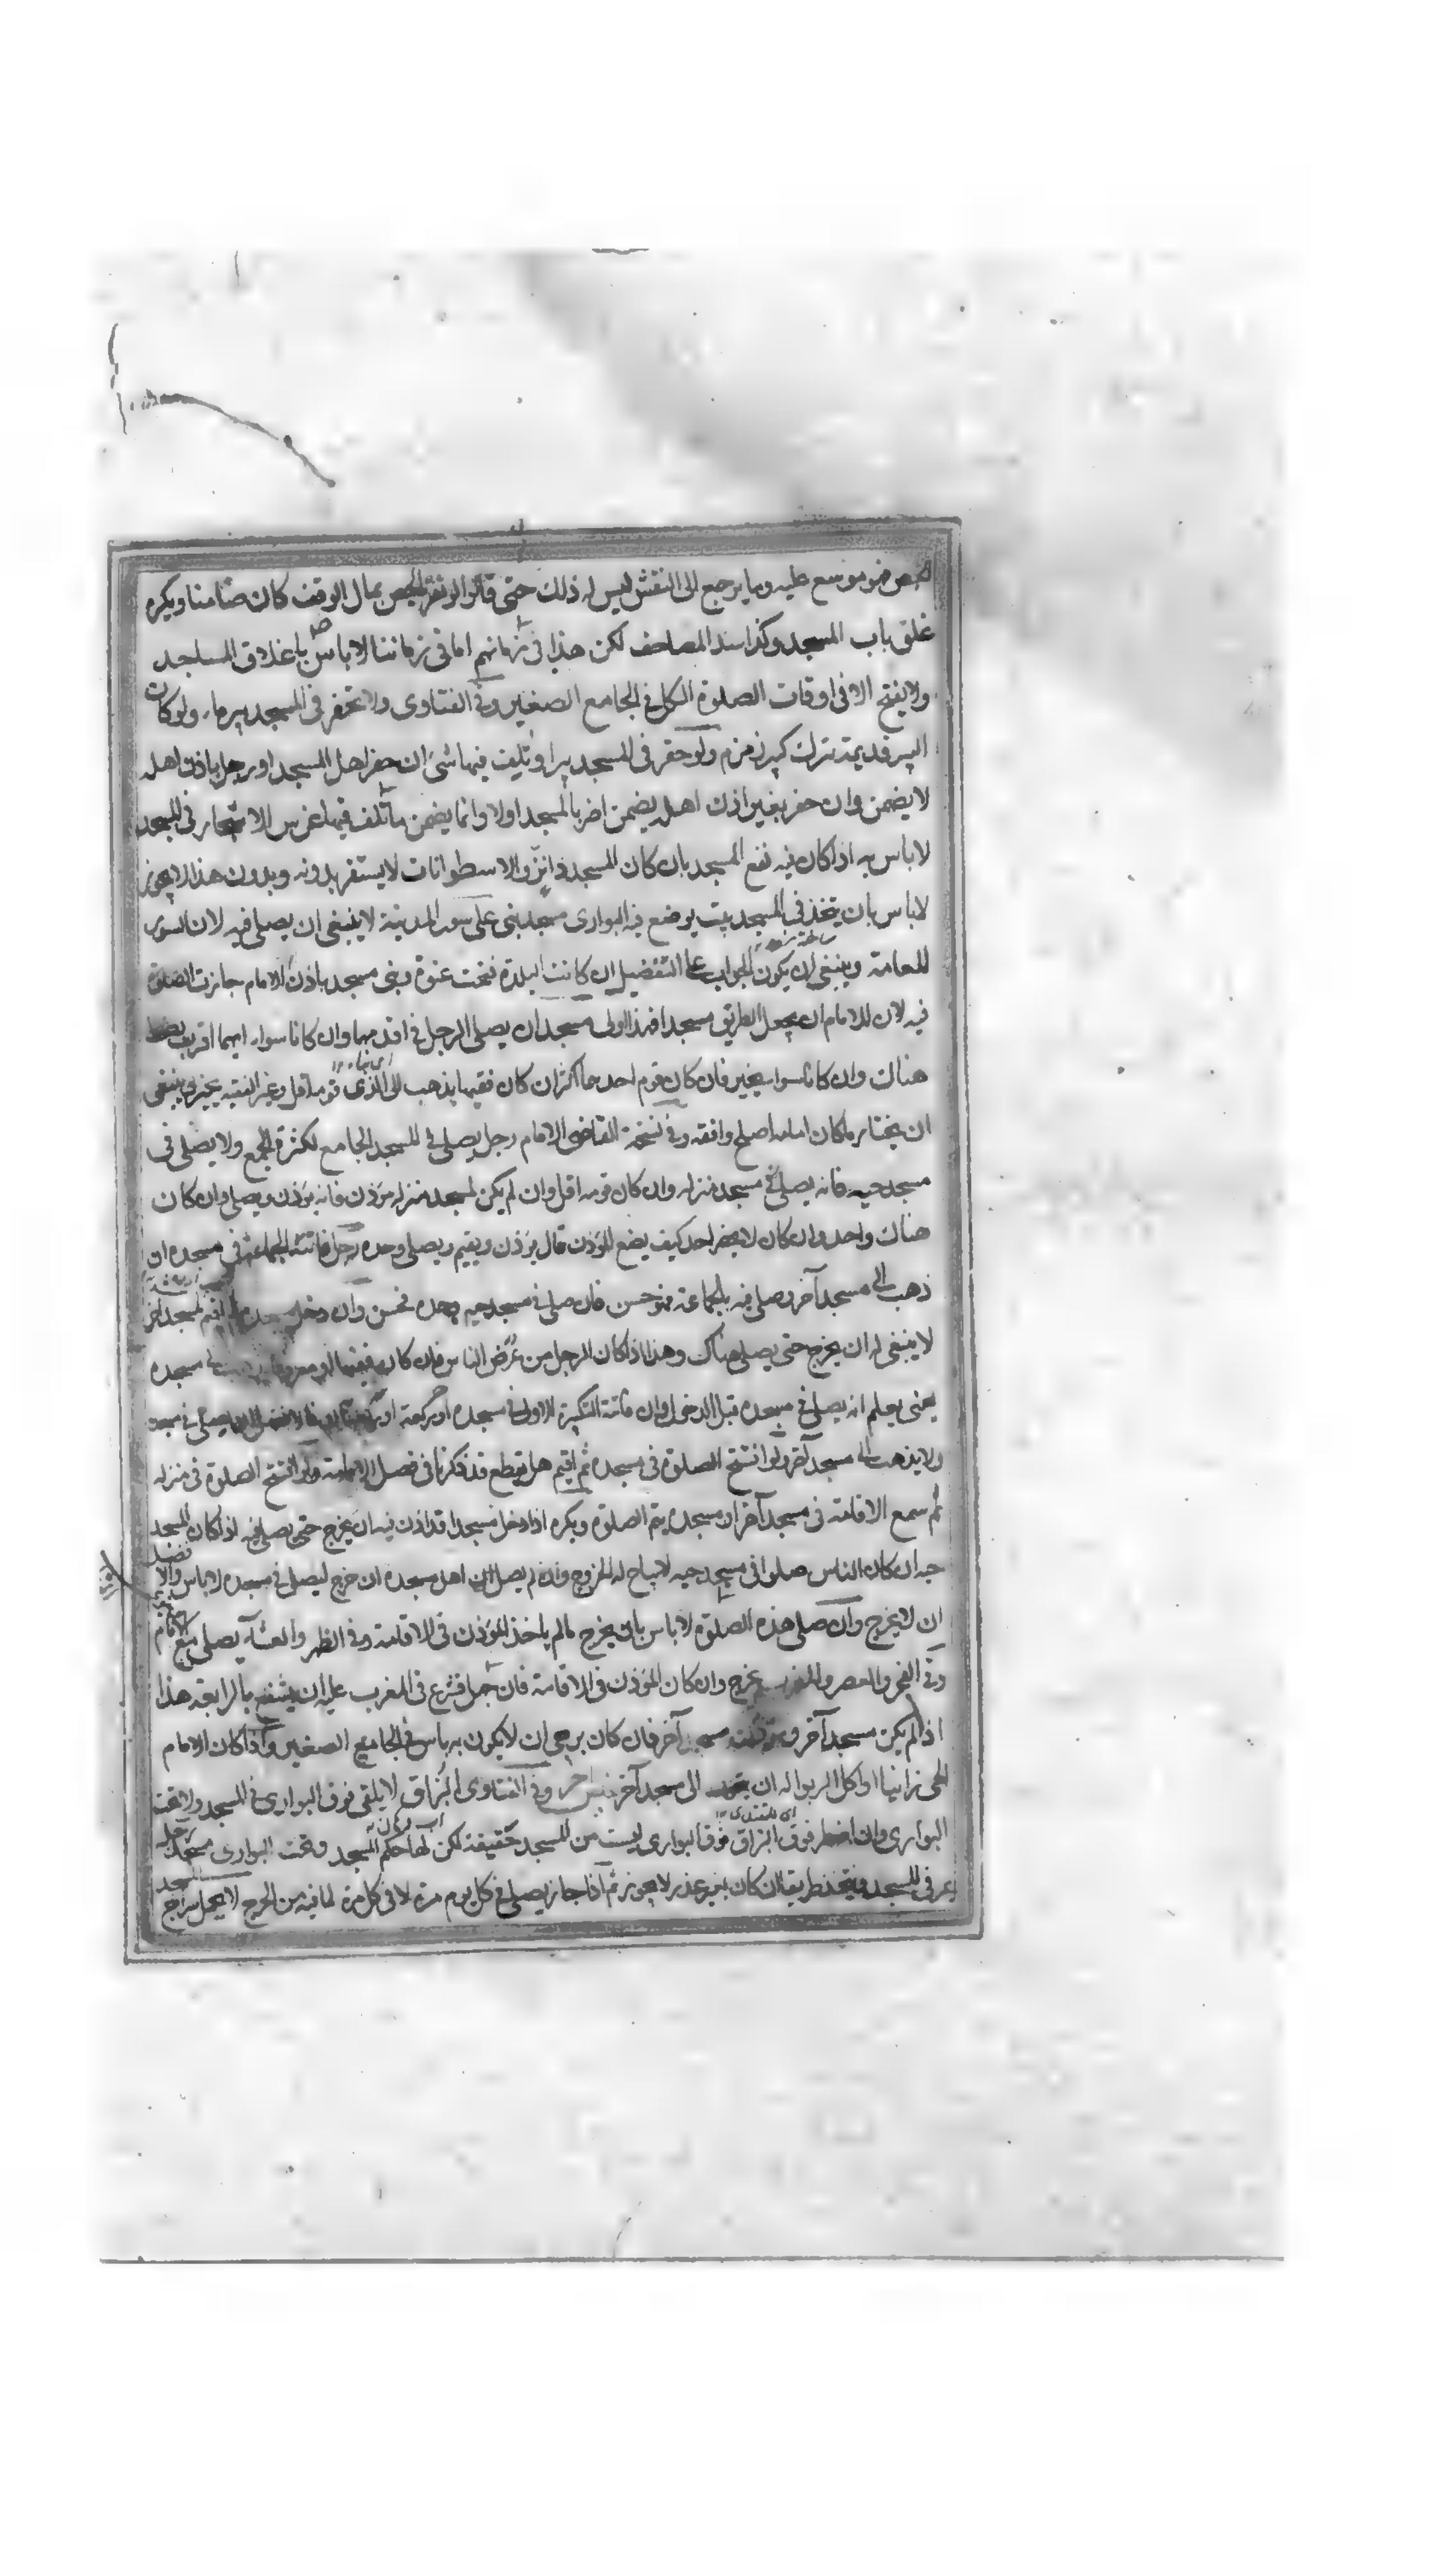 فهو موسع عليه وما يرجع الى النقش ليس له ذلك حتى قالوا لو نقش الجص بمال الوقف كان ضامنا ويكره
غلق باب المسجد وكذا سد المصاحف لكن هذا فى زمانهم اما فى زماننا لا باس باغلاق المساجد
ولا يفتح الا فى اوقات الصلوة الكل فى الجامع الصغير وفى الفتاوى ولا تحفر فى المسجد بير ماء ولو كان
البير قديمة تترك كبير زمزم ولو حفر فى المسجد بيرا وتلف فيها شئ ان حفر اهل المسجد او رجل باذن اهله
لا يضمن وان حفر بغير اذن اهله يضمن اضر بالمسجد او لا وانما يضمن ما تلف فيها غرس الاشجار فى المسجد
لا باس به اذا كان فيه نفع المسجد بان كان المسجد ذا نز والاسطوانات لا يستقر بدونه وبدون هذا لا يجوز
لا باس بان يتخذ فى المسجد بيت يوضع فيه البوارى مسجد بنى على سور المدينة لا ينبغى ان يصلى فيه لان السور
للعامة وينبغى ان يكون الجواب على التفصيل ان كانت البلدة فتحت عنوة وبنى مسجد باذن الامام جازت الصلوة
فيه لان للامام ان يجعل الطريق مسجدا فهذا اولى مسجدان يصلى الرجل فى اقدمهما وان كانا سواء ايهما اقرب يصلى
هناك وان كانا سواء يخير فان كان قوم احدهما اكثر ان كان فقيها يذهب الى الذى قومه اقل وغير الفقيه يخير وينبغى
ان يختار ما كان امامه اصلح وافقه وفى نسخة القاضى الامام رجل يصلى فى المسجد الجامع لكثرة الجمع ولا يصلى فى
مسجد حيه فانه يصلى فى مسجد منزله وان كان قومه اقل وان لم يكن لمسجد منزله مؤذن فانه يؤذن ويصلى وان كان
هناك واحد وان كان لا يحضر احد كيف يصنع المؤذن قال يؤذن ويقيم ويصلى وحده رجل فاتته الجماعة فى مسجده ان
ذهب الى مسجد آخر وصلى فيه بالجماعة فهو حسن فان صلى فى مسجد حيه وحده فحسن وان دخل
لا ينبغى له ان يخرج حتى يصلى هناك وهذا اذا كان الرجل من عرض الناس فان كان فقيها او معروفا مسجده
يعنى يعلم انه يصلى فى مسجده قبل الدخول وان فاتته التكبيرة الاولى فى مسجده او ركعة او يصلى فى مسجده
ولا يذهب الى مسجد آخر ولو افتتح الصلوة فى مسجده ثم اقيم هل يقطع قد ذكرنا فى فصل الامامة ولو افتتح الصلوة فى منزله
ثم سمع الاقامة فى مسجد آخر او مسجده يتم الصلوة ويكره اذا دخل مسجدا قد اذن فيه ان يخرج حتى يصلى فيه اذا كان المسجد
حيه ان كان الناس صلوا فى مسجد حيه لا يباح له الخروج وان لم يصل اهل مسجده ان خرج ليصلى فى مسجده لا باس والا فضل
ان لا يخرج وان صلى هذه الصلوة لا باس بان يخرج مالم ياخذ المؤذن فى الاقامة وفى الظهر والعشاء يصلى مع الامام
وفى الفجر والعصر والمغرب يخرج وان كان المؤذن فى الاقامة فان شرع فى المغرب عليه ان يشفع بالرابعة هذا
اذا لم يكن مسجد آخر مسجد آخر فان كان يرجى ان لا يكون به باس فى الجامع الصغير واذا كان الامام
الحى زانيا او اكل الربوا له ان الى مسجد آخر وفى الفتاوى البزاق لا يلقى فوق البوارى فى المسجد ولا تحت
البوارى وان اضطر فوق البزاق فوق البوارى ليست من المسجد حقيقة لكن لها حكم المسجد وتحت البوارى مسجد
يمر فى المسجد ويتخذ طريقا ان كان بغير عذر لا يجوز ثم اذا جاز يصلى فى كل يوم مرة لا فى كل مرة لما فيه من الحرج لا يحمل سراج المسجد